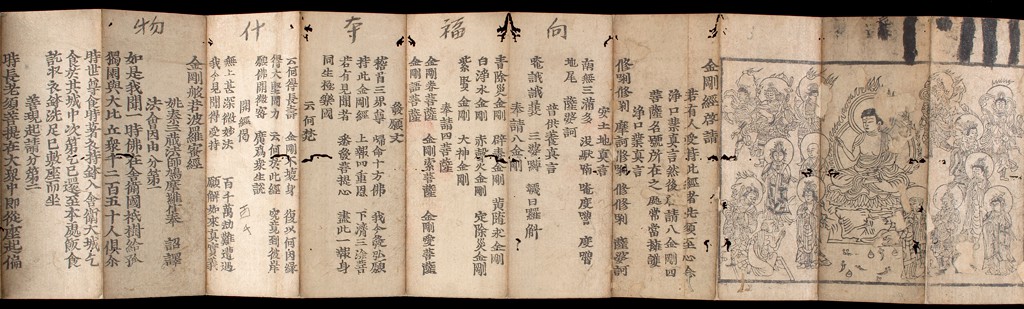 向福夺什物
金剛經啓請
若有人受持此經者先須至心念
淨口業真言然後啓請八金剛四
菩薩名號所在之處常當擁護
淨口業真言
修唎修唎 摩訶修唎 修修唎 薩婆訶
安土地真言
南無三滿多 没馱喃 唵度嚕 度嚕
地尾 薩婆訶
普供養真言
唵誐誐曩 三婆嚩 襪日羅斛
奉請八金剛
青除災金剛 辟毒金剛 黃隨求金剛
白淨水金剛 赤聲火金剛 定除災金剛
紫賢金剛 大神金剛
奉請四菩薩
金剛眷菩薩 金剛索菩薩 金剛愛菩薩
金剛語菩薩
發願文
稽首三界尊 歸命十方佛 我今發弘願
持此金剛經 上報四重恩 下濟三塗苦
若有見聞者 悉發菩提心 盡此一報身
同生極樂國
云何梵
云何得長壽 金剛不壞身 復以何因緣
得大堅固力 云何於此經 究竟到彼岸
願佛開微密 廣爲衆生説
開經偈
無上甚深微妙法 百千萬劫難遭遇
我今見聞得受持 願解如來真實義
金剛般若波羅蜜經
姚秦三藏法師鳩摩羅什奉 詔譯
法會因由分第一
如是我聞一時佛在舍衛國祇樹給孤
獨園與大比丘衆千二百五十人俱爾
時世尊食時著衣持鉢入舍衛大城乞
食於其城中次第乞已還至本處飯食
訖收衣鉢洗足已敷座而坐
善現起請分第二
時長老須菩提在大衆中即從座起偏